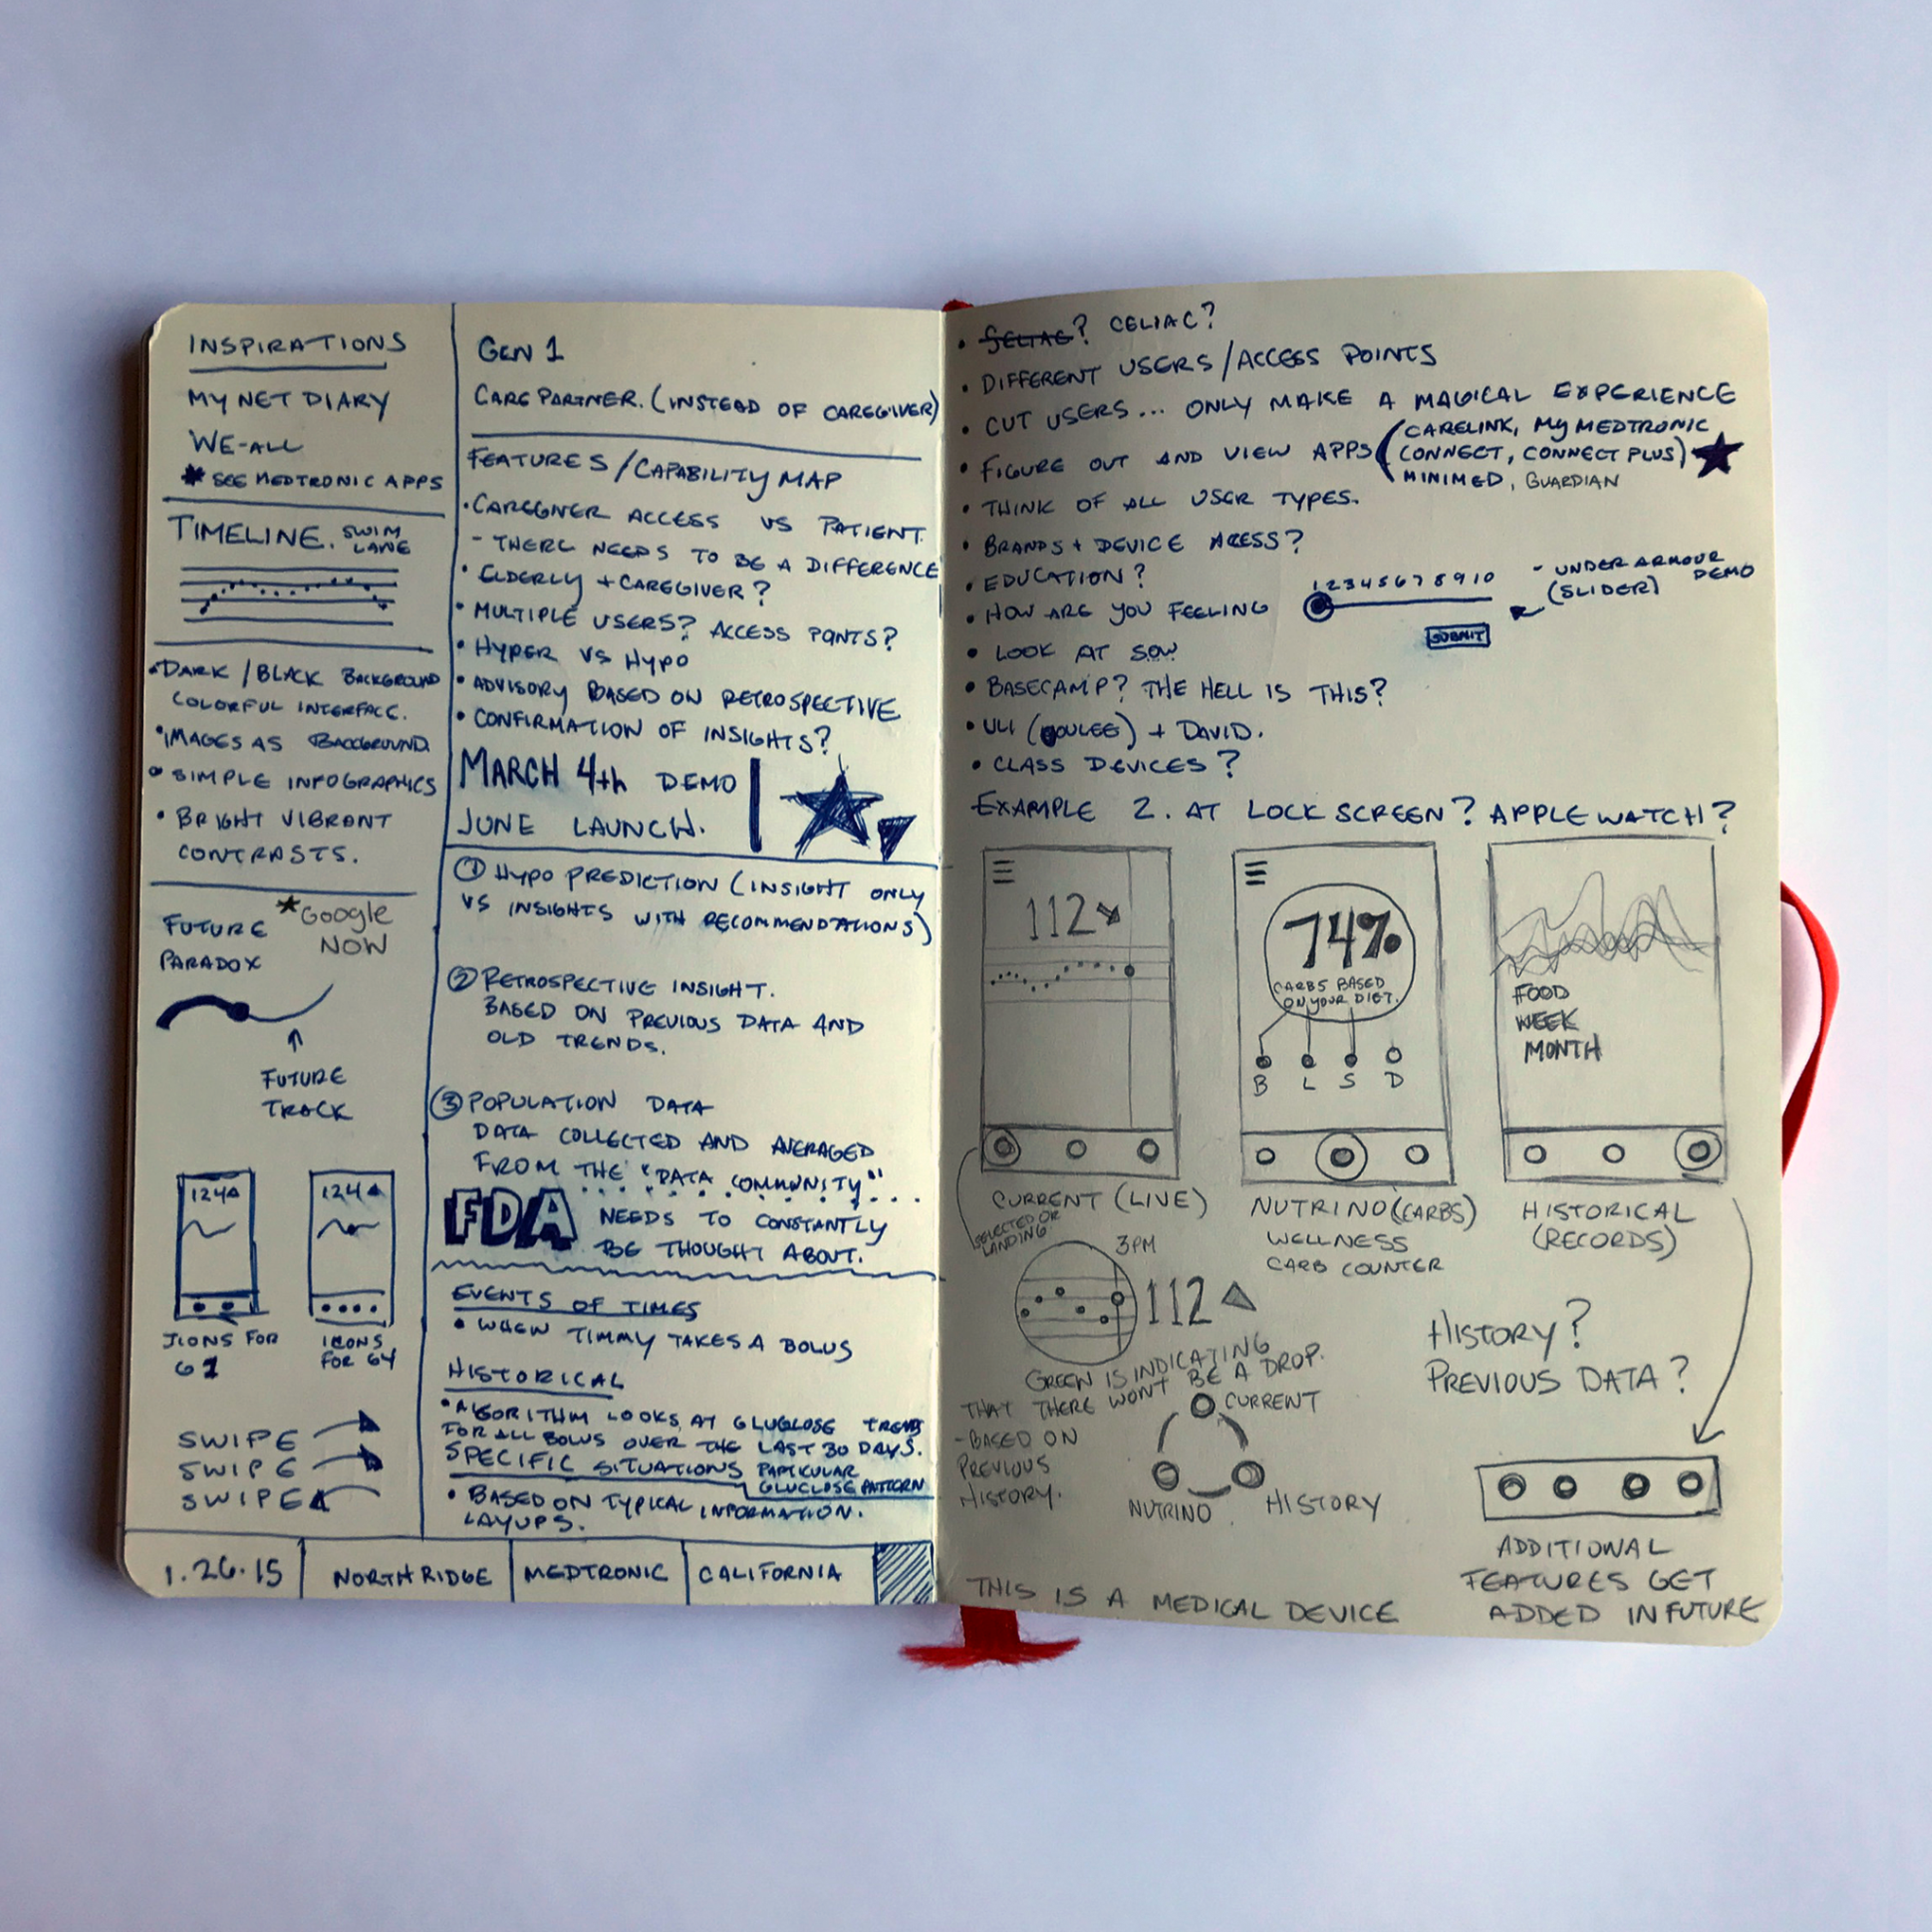 INSPIRATIONS
MY NET DIARY
WE-ALL
* SEE MEDTRONIC APPS
TIMELINE. SWIM
LANE
• DARK / BLACK BACKGROUND
COLORFUL INTERFACE.
• IMAGES AS BACKGROUND.
• SIMPLE INFOGRAPHICS
• BRIGHT VIBRANT
CONTRASTS.
FUTURE
PARADOX
* GOOGLE
NOW
FUTURE
TRACK
124
124
ICONS FOR
G1
ICONS
FOR G4
SWIPE
SWIPE
SWIPE
GEN 1
CARE PARTNER. (INSTEAD OF CAREGIVER)
FEATURES / CAPABILITY MAP
• CAREGIVER ACCESS VS PATIENT.
- THERE NEEDS TO BE A DIFFERENCE
• ELDERLY + CAREGIVER?
• MULTIPLE USERS? ACCESS POINTS?
• HYPER VS HYPO
• ADVISORY BASED ON RETROSPECTIVE
• CONFIRMATION OF INSIGHTS?
MARCH 4th DEMO
JUNE LAUNCH.
① HYPO PREDICTION (INSIGHT ONLY
VS INSIGHTS WITH RECOMMENDATIONS)
② RETROSPECTIVE INSIGHT.
BASED ON PREVIOUS DATA AND
OLD TRENDS.
③ POPULATION DATA
DATA COLLECTED AND AVERAGED
FROM THE "DATA COMMUNITY"
FDA NEEDS TO CONSTANTLY
BE THOUGHT ABOUT.
EVENTS OF TIMES
• WHEN TIMMY TAKES A BOLUS
HISTORICAL
• ALGORITHM LOOKS AT GLUGLOSE TRENDS
FOR ALL BOLUS OVER THE LAST 30 DAYS.
SPECIFIC SITUATIONS PARTICULAR
GLUCLOSE PATTERN
• BASED ON TYPICAL INFORMATION.
LAYUPS.
1.26.15 NORTHRIDGE MEDTRONIC CALIFORNIA
• ? CELIAC?
• DIFFERENT USERS / ACCESS POINTS
• CUT USERS... ONLY MAKE A MAGICAL EXPERIENCE
• FIGURE OUT AND VIEW APPS (CARELINK, MY MEDTRONIC
CONNECT, CONNECT PLUS)
MINIMED, GUARDIAN
• THINK OF ALL USER TYPES.
• BRANDS + DEVICE ACESS?
• EDUCATION?
• HOW ARE YOU FEELING
1 2 3 4 5 6 7 8 9 10
- UNDER ARMOUR
(SLIDER) DEMO
SUBMIT
• LOOK AT SOW
• BASECAMP? THE HELL IS THIS?
• ULI (OULEE) + DAVID.
• CLASS DEVICES?
EXAMPLE 2. AT LOCK SCREEN? APPLE WATCH?
112
74%
CARBS BASED
ON YOUR DIET.
B L S D
FOOD
WEEK
MONTH
CURRENT (LIVE)
SELECTED OR
LANDING
NUTRINO (CARBS)
WELLNESS
CARB COUNTER
HISTORICAL
(RECORDS)
3PM
112
GREEN IS INDICATING
THAT THERE WONT BE A DROP.
- BASED ON
PREVIOUS
HISTORY.
CURRENT
NUTRINO
HISTORY
HISTORY?
PREVIOUS DATA?
ADDITIONAL
FEATURES GET
ADDED IN FUTURE
THIS IS A MEDICAL DEVICE